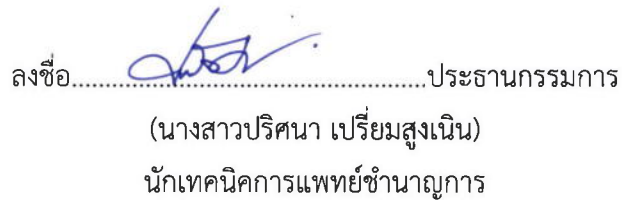 ลงชื่อ.....................................................ประธานกรรมการ
(นางสาวปริศนา เปรี่ยมสูงเนิน)
นักเทคนิคการแพทย์ชำนาญการ